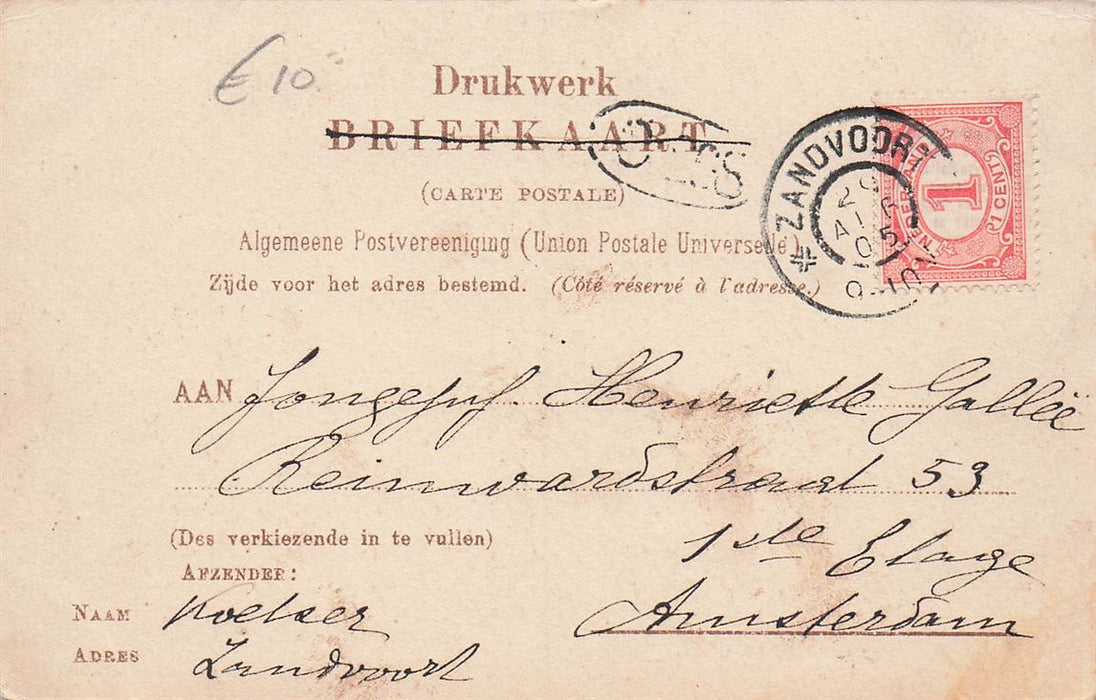 € 10
Drukwerk
BRIEFKAART
(CARTE POSTALE)
Algemeene Postvereeniging (Union Postale Universelle)
Zijde voor het adres bestemd. (Côté réservé à l'adresse.)
ZANDVOORT
05
NEDERLAND
1
1 CENT
AAN Jongejuf. Henriette Gallée
Reinwardstraat 53
1ste Etage
Amsterdam
(Des verkiezende in te vullen)
AFZENDER:
NAAM Koelser
ADRES Zandvoort